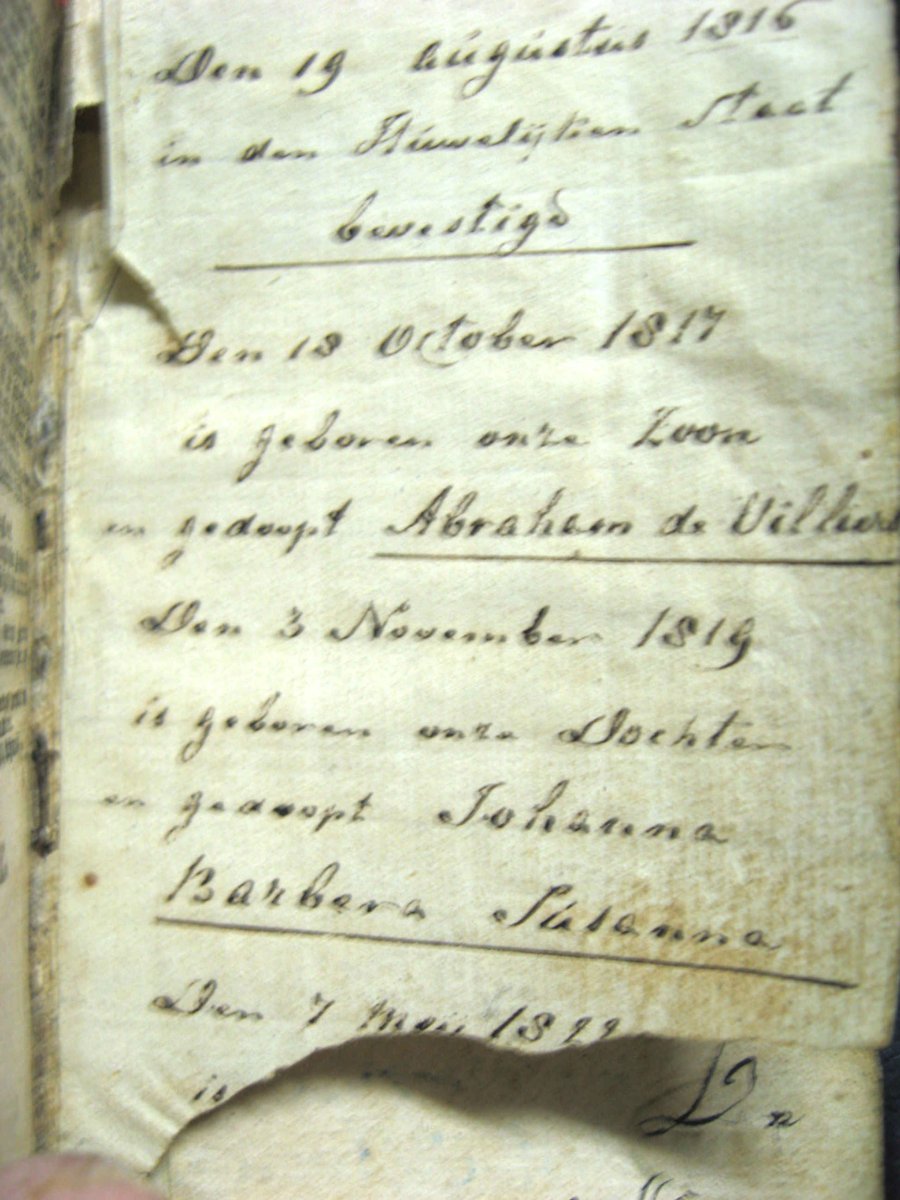 Den 19 Augustus 1816
in den Húwelijken Staat
bevestigd
Den 18 October 1817
is geboren onze Zoon
en gedoopt Abraham de Villiers
Den 3 November 1819
is geboren onze Dochter
en gedoopt Johanna
Barbera Súsanna
Den 7 Meij 1822
is